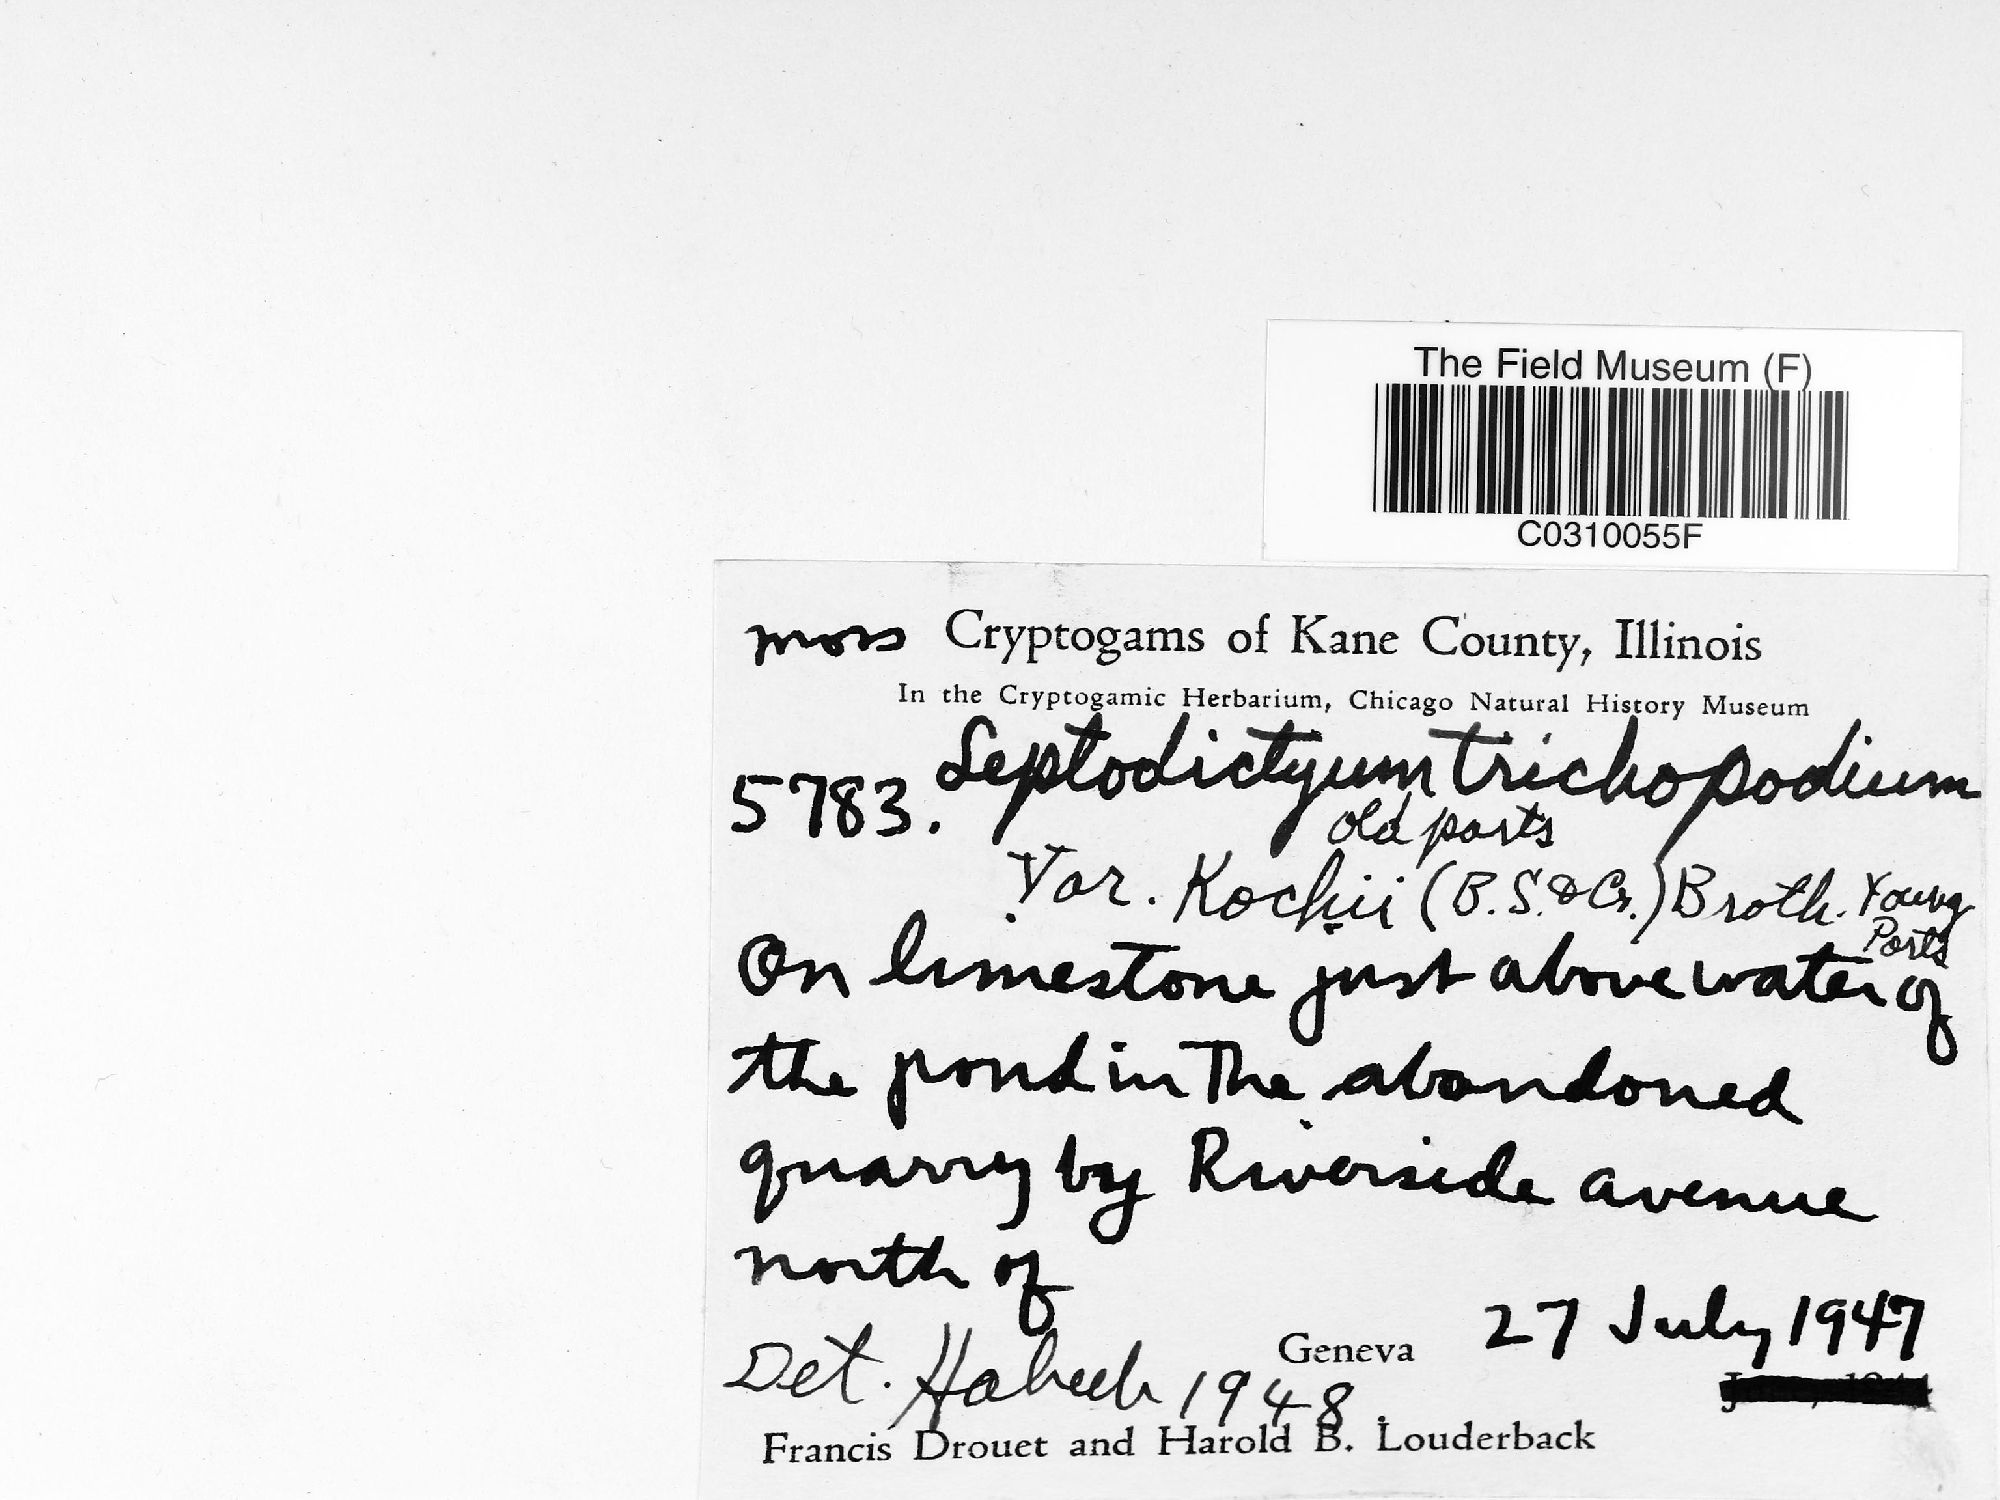 The Field Museum (F)
C0310055F
moss Cryptogams of Kane County, Illinois
In the Cryptogamic Herbarium, Chicago Natural History Museum
5783. Leptodictyum trichopodium
old parts
Var. Kochii (B.S.&G.) Broth. Young
Parts
On limestone just above water of
the pond in the abandoned
quarry by Riverside avenue
north of
Geneva 27 July 1947
Det. Habeeb 1948.
Francis Drouet and Harold B. Louderback